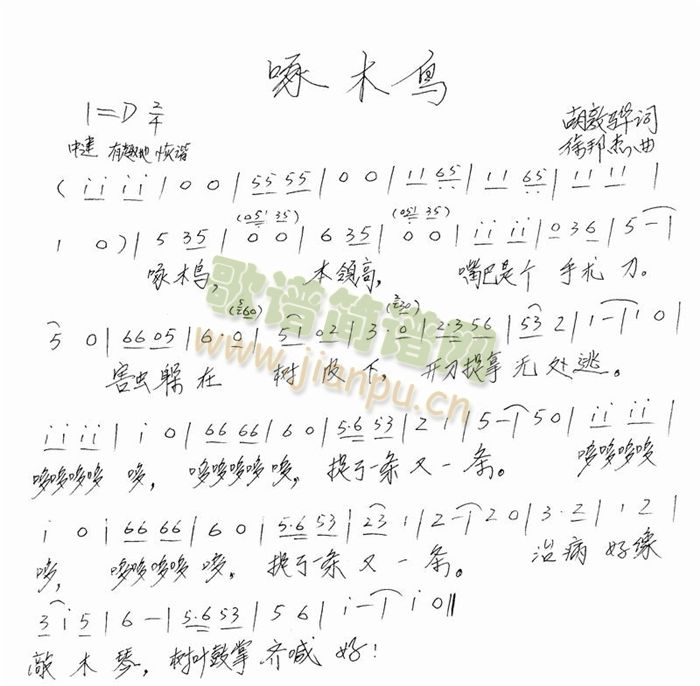 啄木鸟
1=D 2/4
中速 有趣地 诙谐
胡敦骅词
徐邦杰曲
( i i i i | 0 0 | 5 5 5 5 | 0 0 | 1 1 6 5 | 1 1 6 5 | 1 1 1 1 |
(0 5 3 5) (0 5 3 5)
1 0 ) | 5 3 5 | 0 0 | 6 3 5 | 0 0 | i i i i | 0 3 6 | 5 - |
啄木鸟, 本领高, 嘴巴是个手术刀。
5 0 | 6 6 0 5 | 6 · 0 | 5 i 0 2 | 3 · 0 | 2 · 3 5 6 | 5 3 2 | 1 - | 1 0 |
害虫躲在 树皮下, 开刀捉拿无处逃。
i i i i | i 0 | 6 6 6 6 | 6 0 | 5 · 6 5 3 | 2 1 | 5 - | 5 0 | i i i i |
哆哆哆哆 哆, 哆哆哆哆哆, 捉了一条又一条。 哆哆哆哆
i 0 | 6 6 6 6 | 6 0 | 5 · 6 5 3 | 2 3 1 | 2 - | 2 0 | 3 · 2 | 1 2 |
哆, 哆哆哆哆哆, 捉了一条又一条。 治病好像
3 i 5 | 6 - | 5 · 6 5 3 | 5 6 | i - | i 0 ||
敲木琴, 树叶鼓掌齐喊好!
歌谱简谱网
www.jianpu.cn